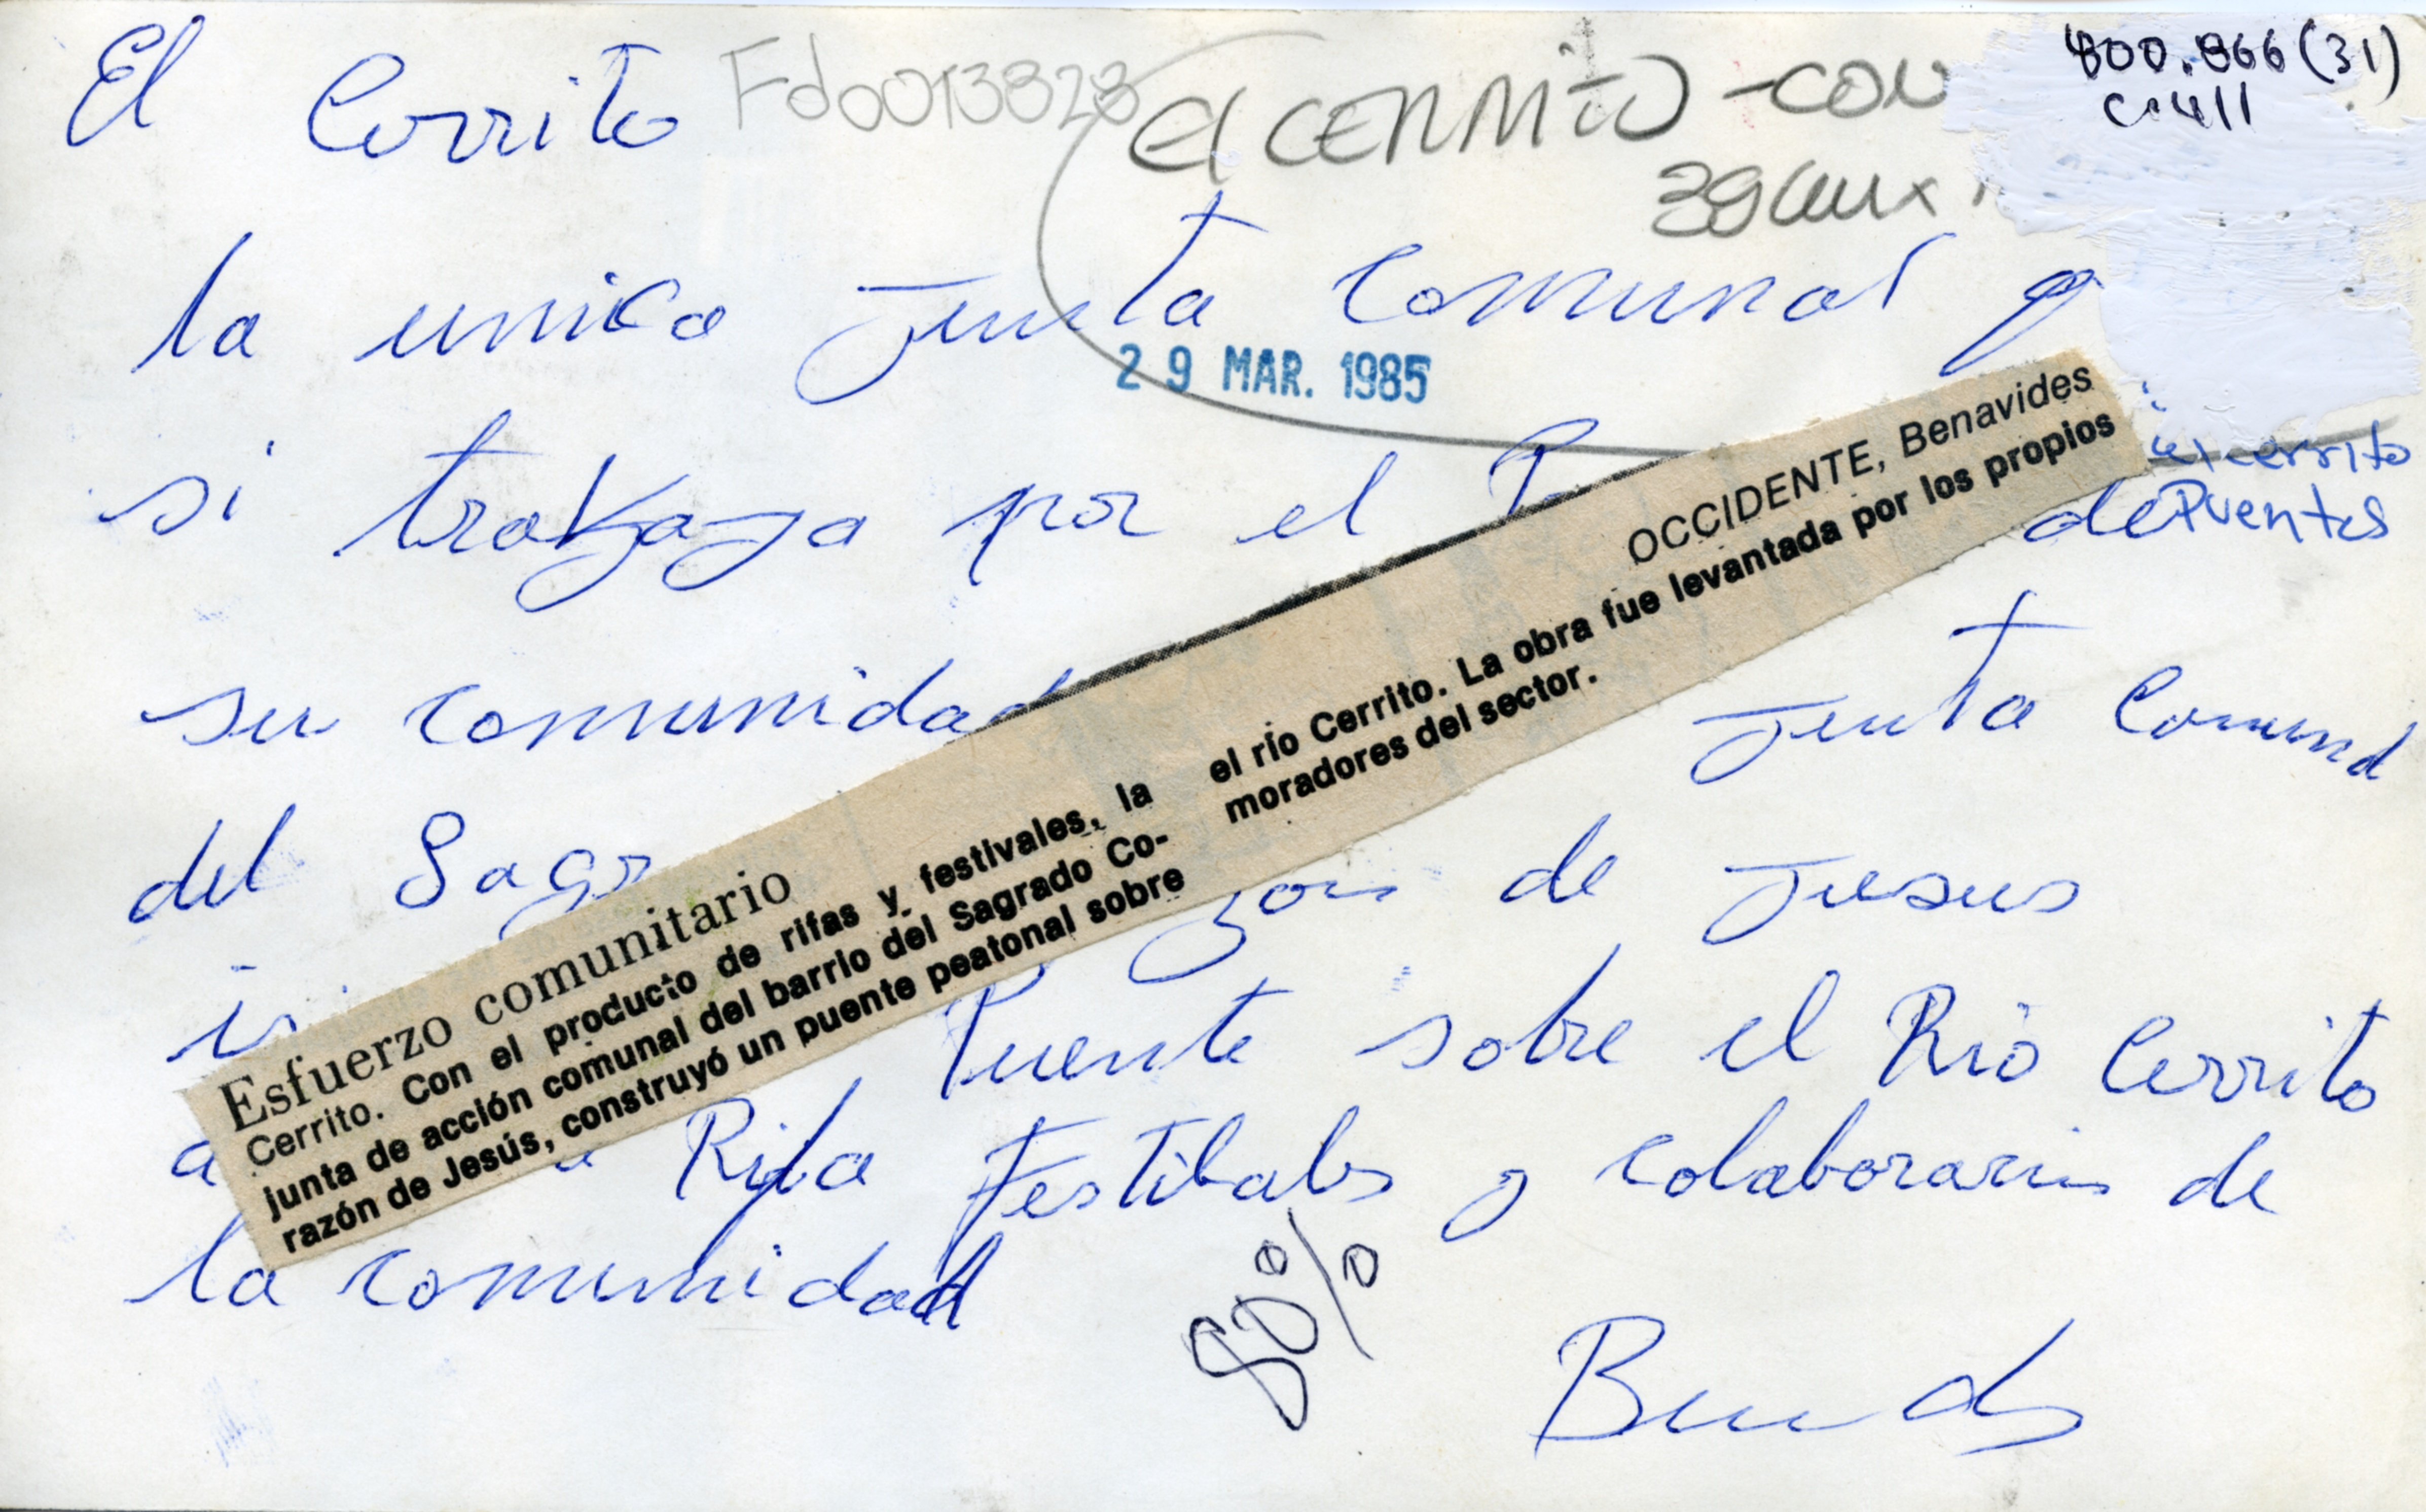 El Cerrito
Fd0013828
El CERRITO - COM
39 cmx
800.866(31)
C1411
la unica junta comunal q
29 MAR. 1985
si trabaja por el
de
elcerrito
Puentes
su comunidad
junta Comunal
del Sagr
zon de Jesus
Puente sobre el Rio Cerrito
a Rifa Festibales y colaboracion de
la comunidad
80%
OCCIDENTE, Benavides
Esfuerzo comunitario
Cerrito. Con el producto de rifas y festivales, la
junta de acción comunal del barrio del Sagrado Co-
razón de Jesús, construyó un puente peatonal sobre
el río Cerrito. La obra fue levantada por los propios
moradores del sector.